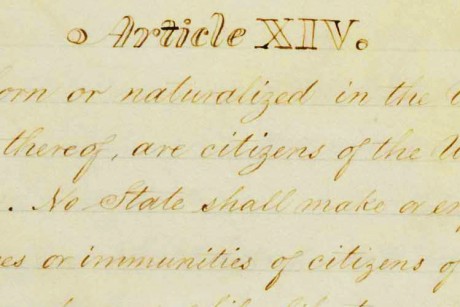 Article XIV.
orn or naturalized in the
thereof, are citizens of the U
. No State shall make or en
es or immunities of citizens of